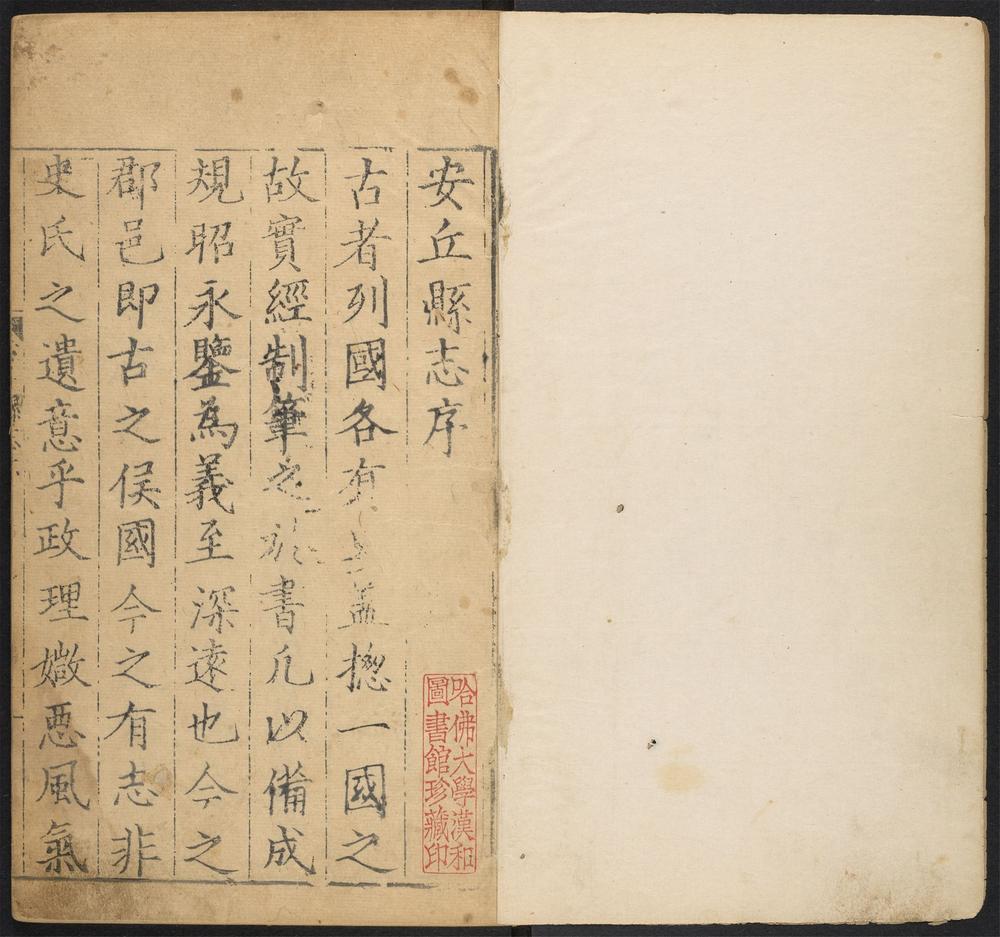 安丘縣志序
古者列國各有蓋揔一國之
故實經制筆之書凢以備成
規昭永鑒為義至深遠也今之
郡邑即古之侯國今之有志非
史氏之遺意乎政理媺惡風氣
哈佛大學漢和
圖書館珍藏印